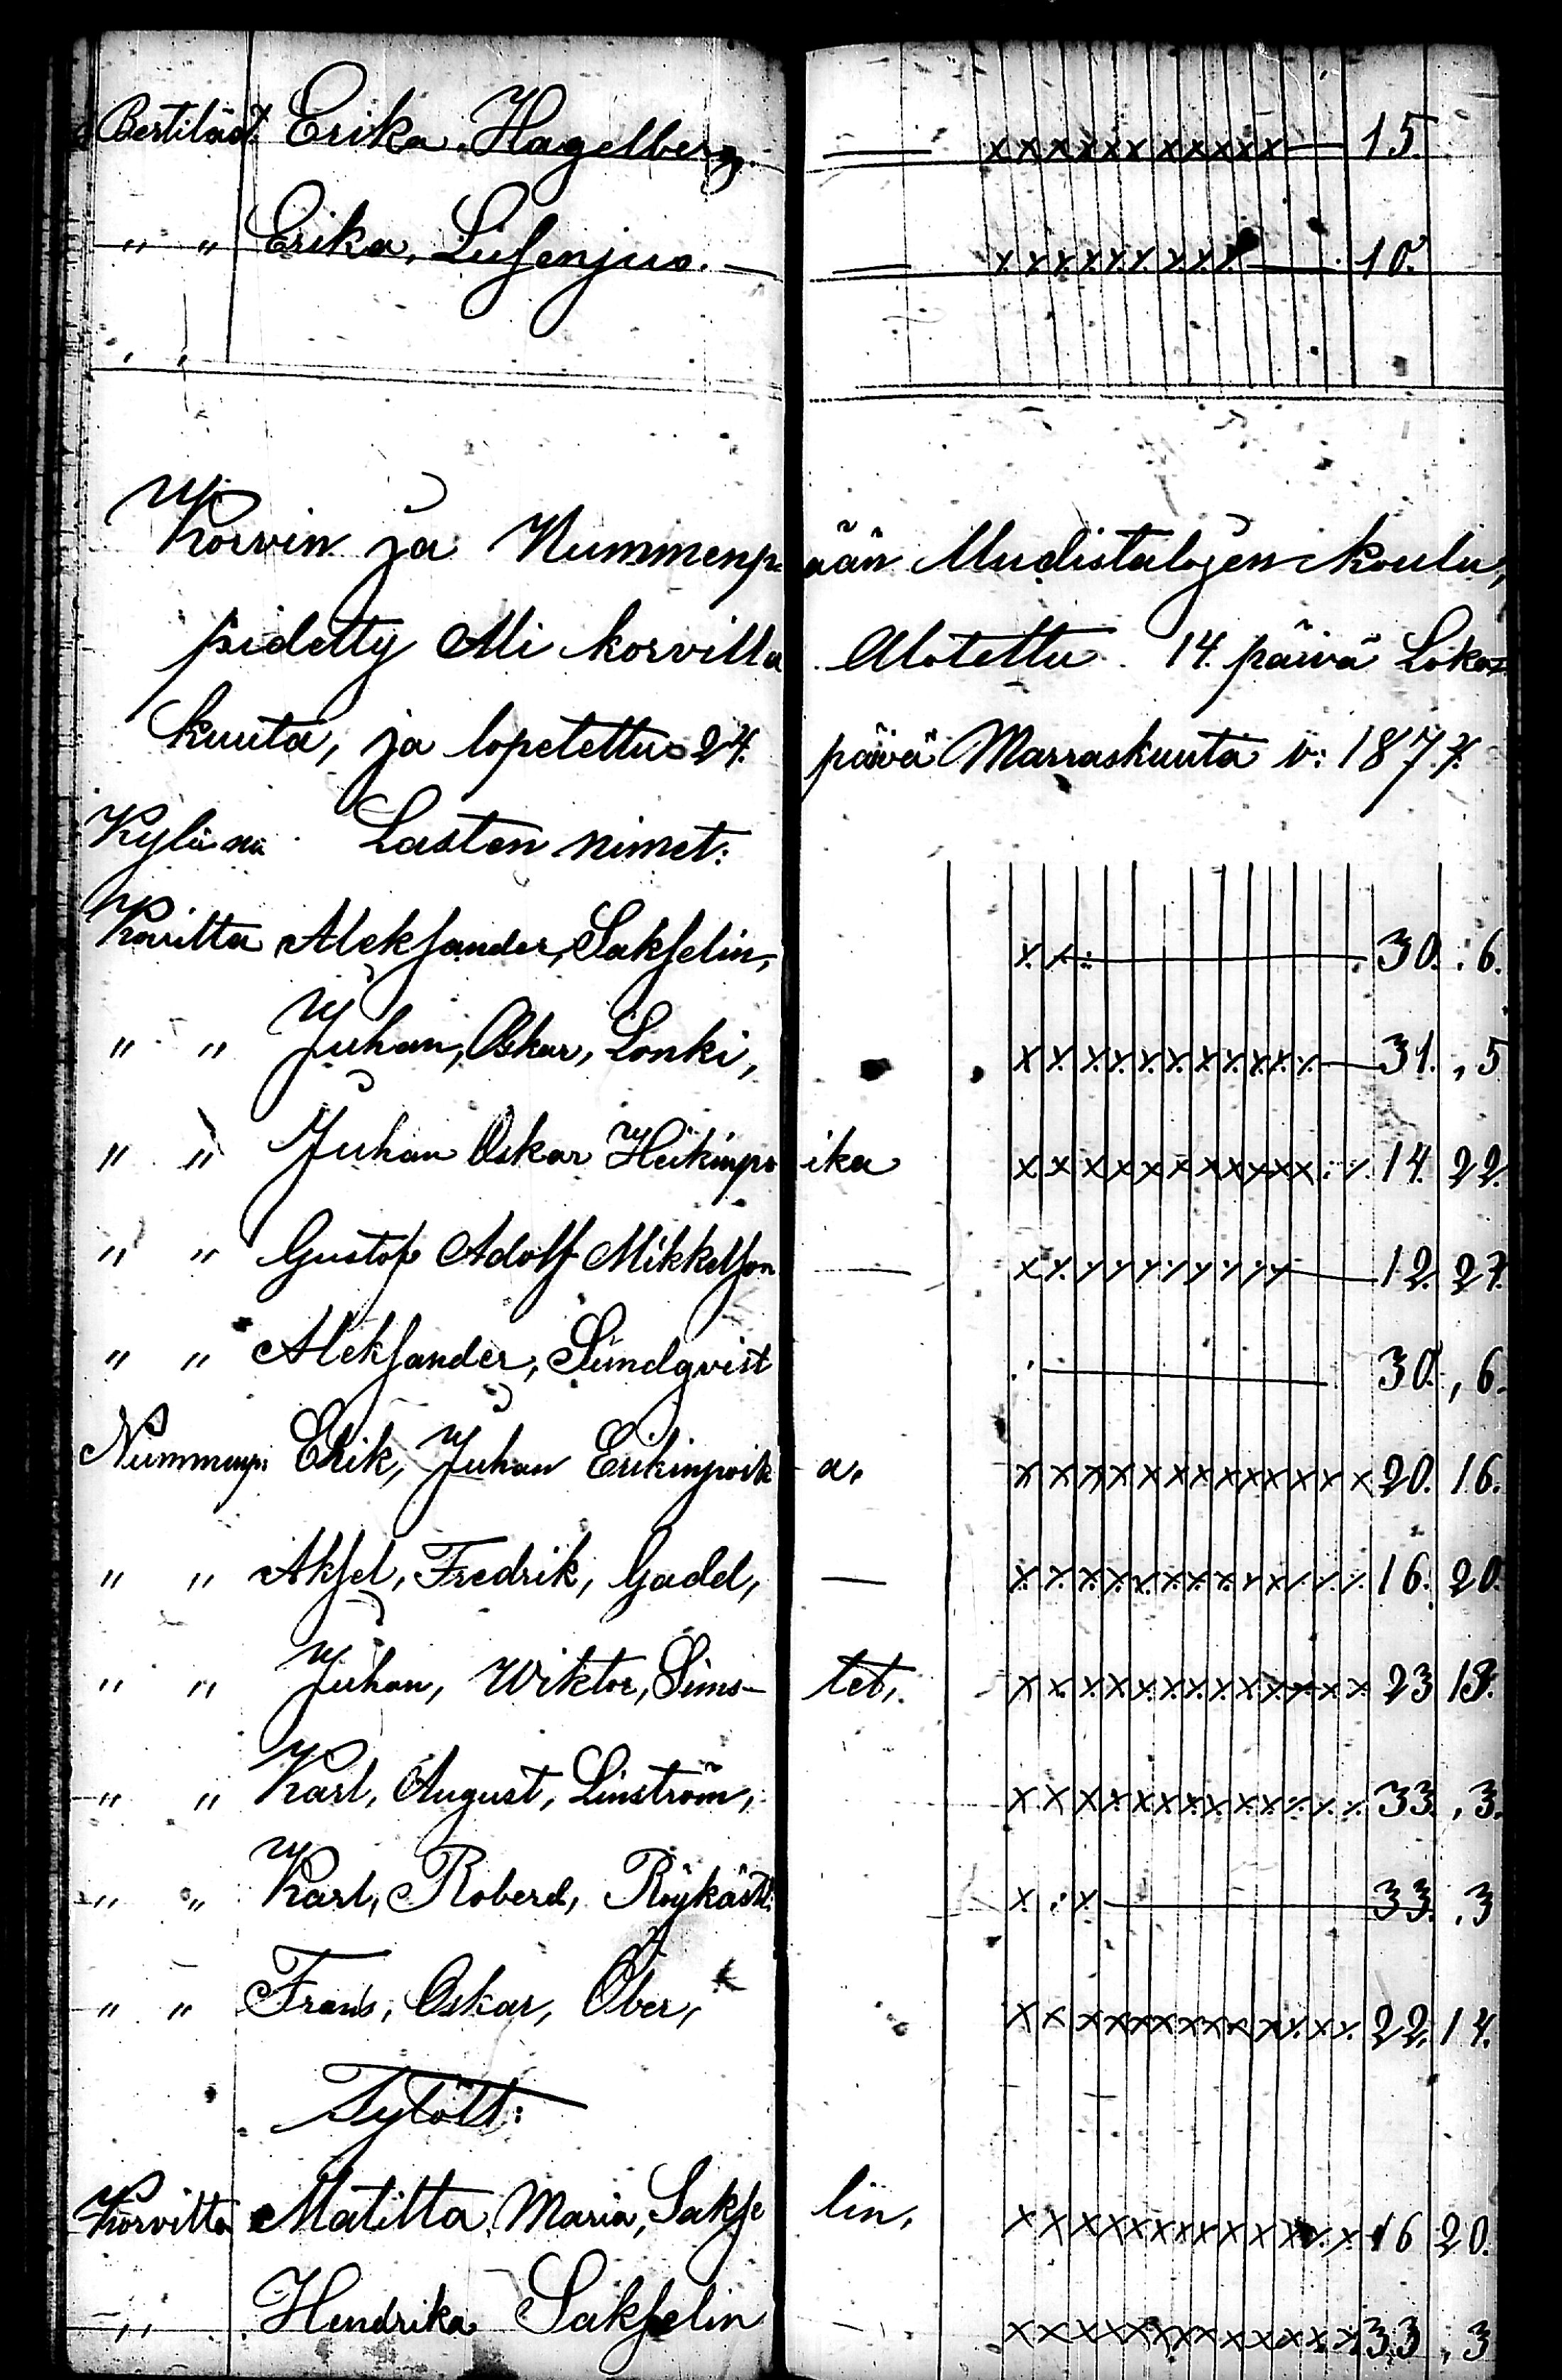 Bertiläst. Erika Hagelberg. — x x x x x x x x x x x — 15.
" " Erika, Liljenjus. — — x x x x x x x x x — 10.
" "
Korvin ja Nummenpään Uudistalojen koulu,
pidetty Ali korvilla. Alotettu 14. päivä Loka=
kuuta, ja lopetettu 24. päivä Marraskuuta v: 1877.
Kylän Lasten nimet:
Korvilta Aleksander, Sakselin, x x — 30. 6.
" " Juhan, Oskar, Lonki, x x x x x x x x x x x — 31. 5
" " Juhan Oskar Heikinpoika x x x x x x x x x x x 14. 22.
" " Gustof Adolf Mikkelson — x x x x x x x x x x — 12. 27.
" " Aleksander, Sundqvist — 30. 6.
Nummenp: Erik, Juhan Erikinpoika. x x x x x x x x x x x x x 20. 16.
" " Aksel, Fredrik, Gadd, — x x x x x x x x x x x x x 16. 20.
" " Juhan, Wiktor, Simstet, x x x x x x x x x x x x x 23 13.
" " Karl, August, Linström, x x x x x x x x x x x x x 33. 3.
" " Karl, Roberd, Röykäst. x x — 33. 3
" " Frans, Oskar, Öber, x x x x x x x x x x x x x 22. 14.
Tytöt:
Korvilta Matilta Maria, Sakselin, x x x x x x x x x x x x x 16 20.
" Hendrika Sakselin x x x x x x x x x x x x x 33. 3